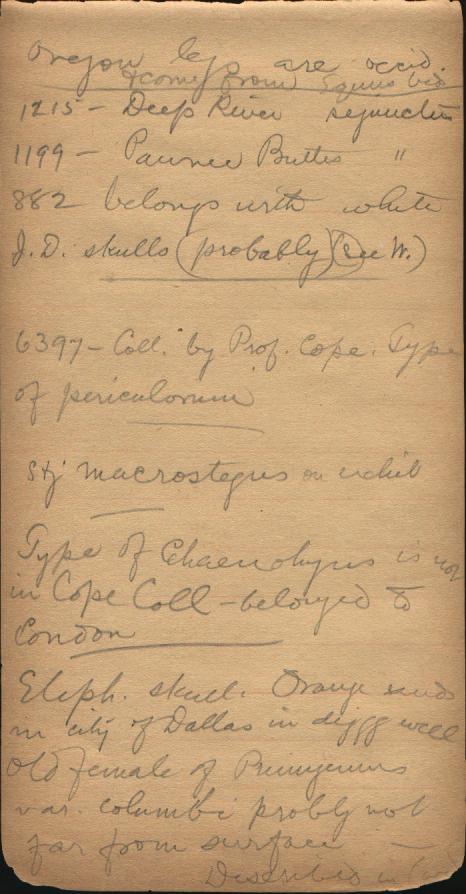 Oregon legs are occid.
& come from Equus bed
1215 - Deep River sejunctus
1199 - Pawnee Buttes "
882 belongs with white
J.D. skulls (probably) (see W.)
6397 - Coll. by Prof. Cope. Type
of periculorum
Stg macrostegus on exhib
Type of Chaenohyus is not
in Cope Coll - belonged to
Condon
Eleph. skull. Orange sands
in city of Dallas in digg well
Old female of Primigenius
var. columbi probly not
far from surface -
Described in